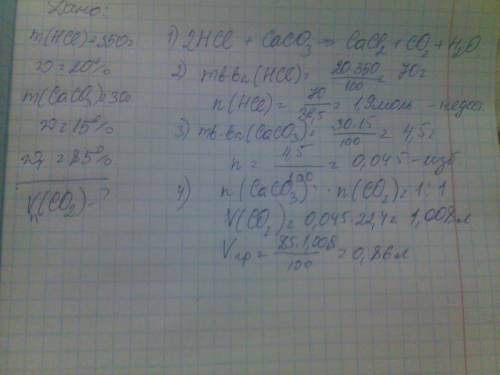 Дано:
m(HCl)=350г
ω=20%
m(CaCO3)=30
ω=15%
ω=85%
V(CO2)-?
1) 2HCl + CaCO3 → CaCl2 + CO2 + H2O
2) mв.ва(HCl)= 20·350/100 = 70г
n(HCl)= 70/36,5 = 1,9моль -
3) mв.ва(CaCO3)= 30·15/100 = 4,5г
n = 4,5/100 = 0,045 - изб
4) n(CaCO3) : n(CO2)=1:1
V(CO2)= 0,045·22,4= 1,008л
Vпр= 85·1,008/100 = 0,86л